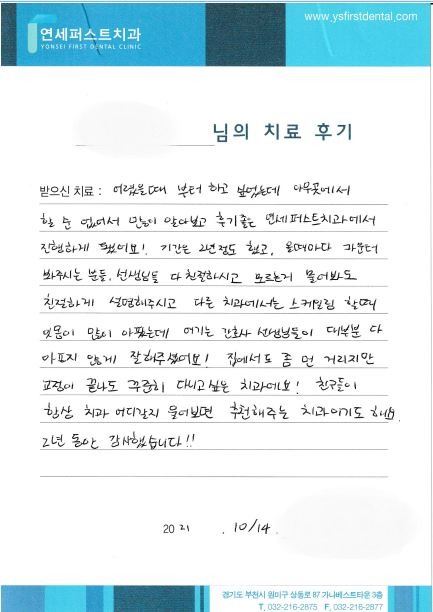 www.ysfirstdental.com
연세퍼스트치과
YONSEI FIRST DENTAL CLINIC
님의 치료 후기
받으신 치료 : 어렸을때 부터 하고 싶었는데 아무곳에서
할 순 없어서 많이 알아보고 후기좋은 연세퍼스트치과에서
진행하게 됐어요! 기간은 2년정도 했고, 올때마다 카운터
봐주시는 분들, 선생님들 다 친절하시고 모르는거 물어봐도
친절하게 설명해주시고 다른 치과에서는 스케일링 할때
잇몸이 많이 아팠는데 여기는 간호사 선생님들이 대부분 다
아프지 않게 잘해주셨어요! 집에서도 좀 먼 거리지만
교정이 끝나도 꾸준히 다니고싶은 치과에요! 친구들이
항상 치과 어디갈지 물어보면 추천해주는 치과이기도 해요.
2년 동안 감사했습니다!!
2021 . 10/14.
경기도 부천시 원미구 상동로 87 가나베스트타운 3층
T. 032-216-2875 F. 032-216-2877